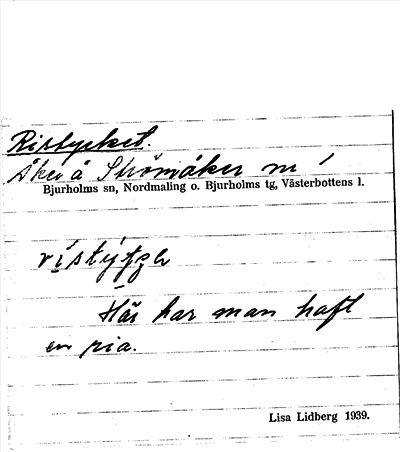 Ristycket.
Åker å Strömåker m 1
Bjurholms sn, Nordmaling o. Bjurholms tg, Västerbottens l.
Här har man haft
en ria.
Lisa Lidberg 1939.